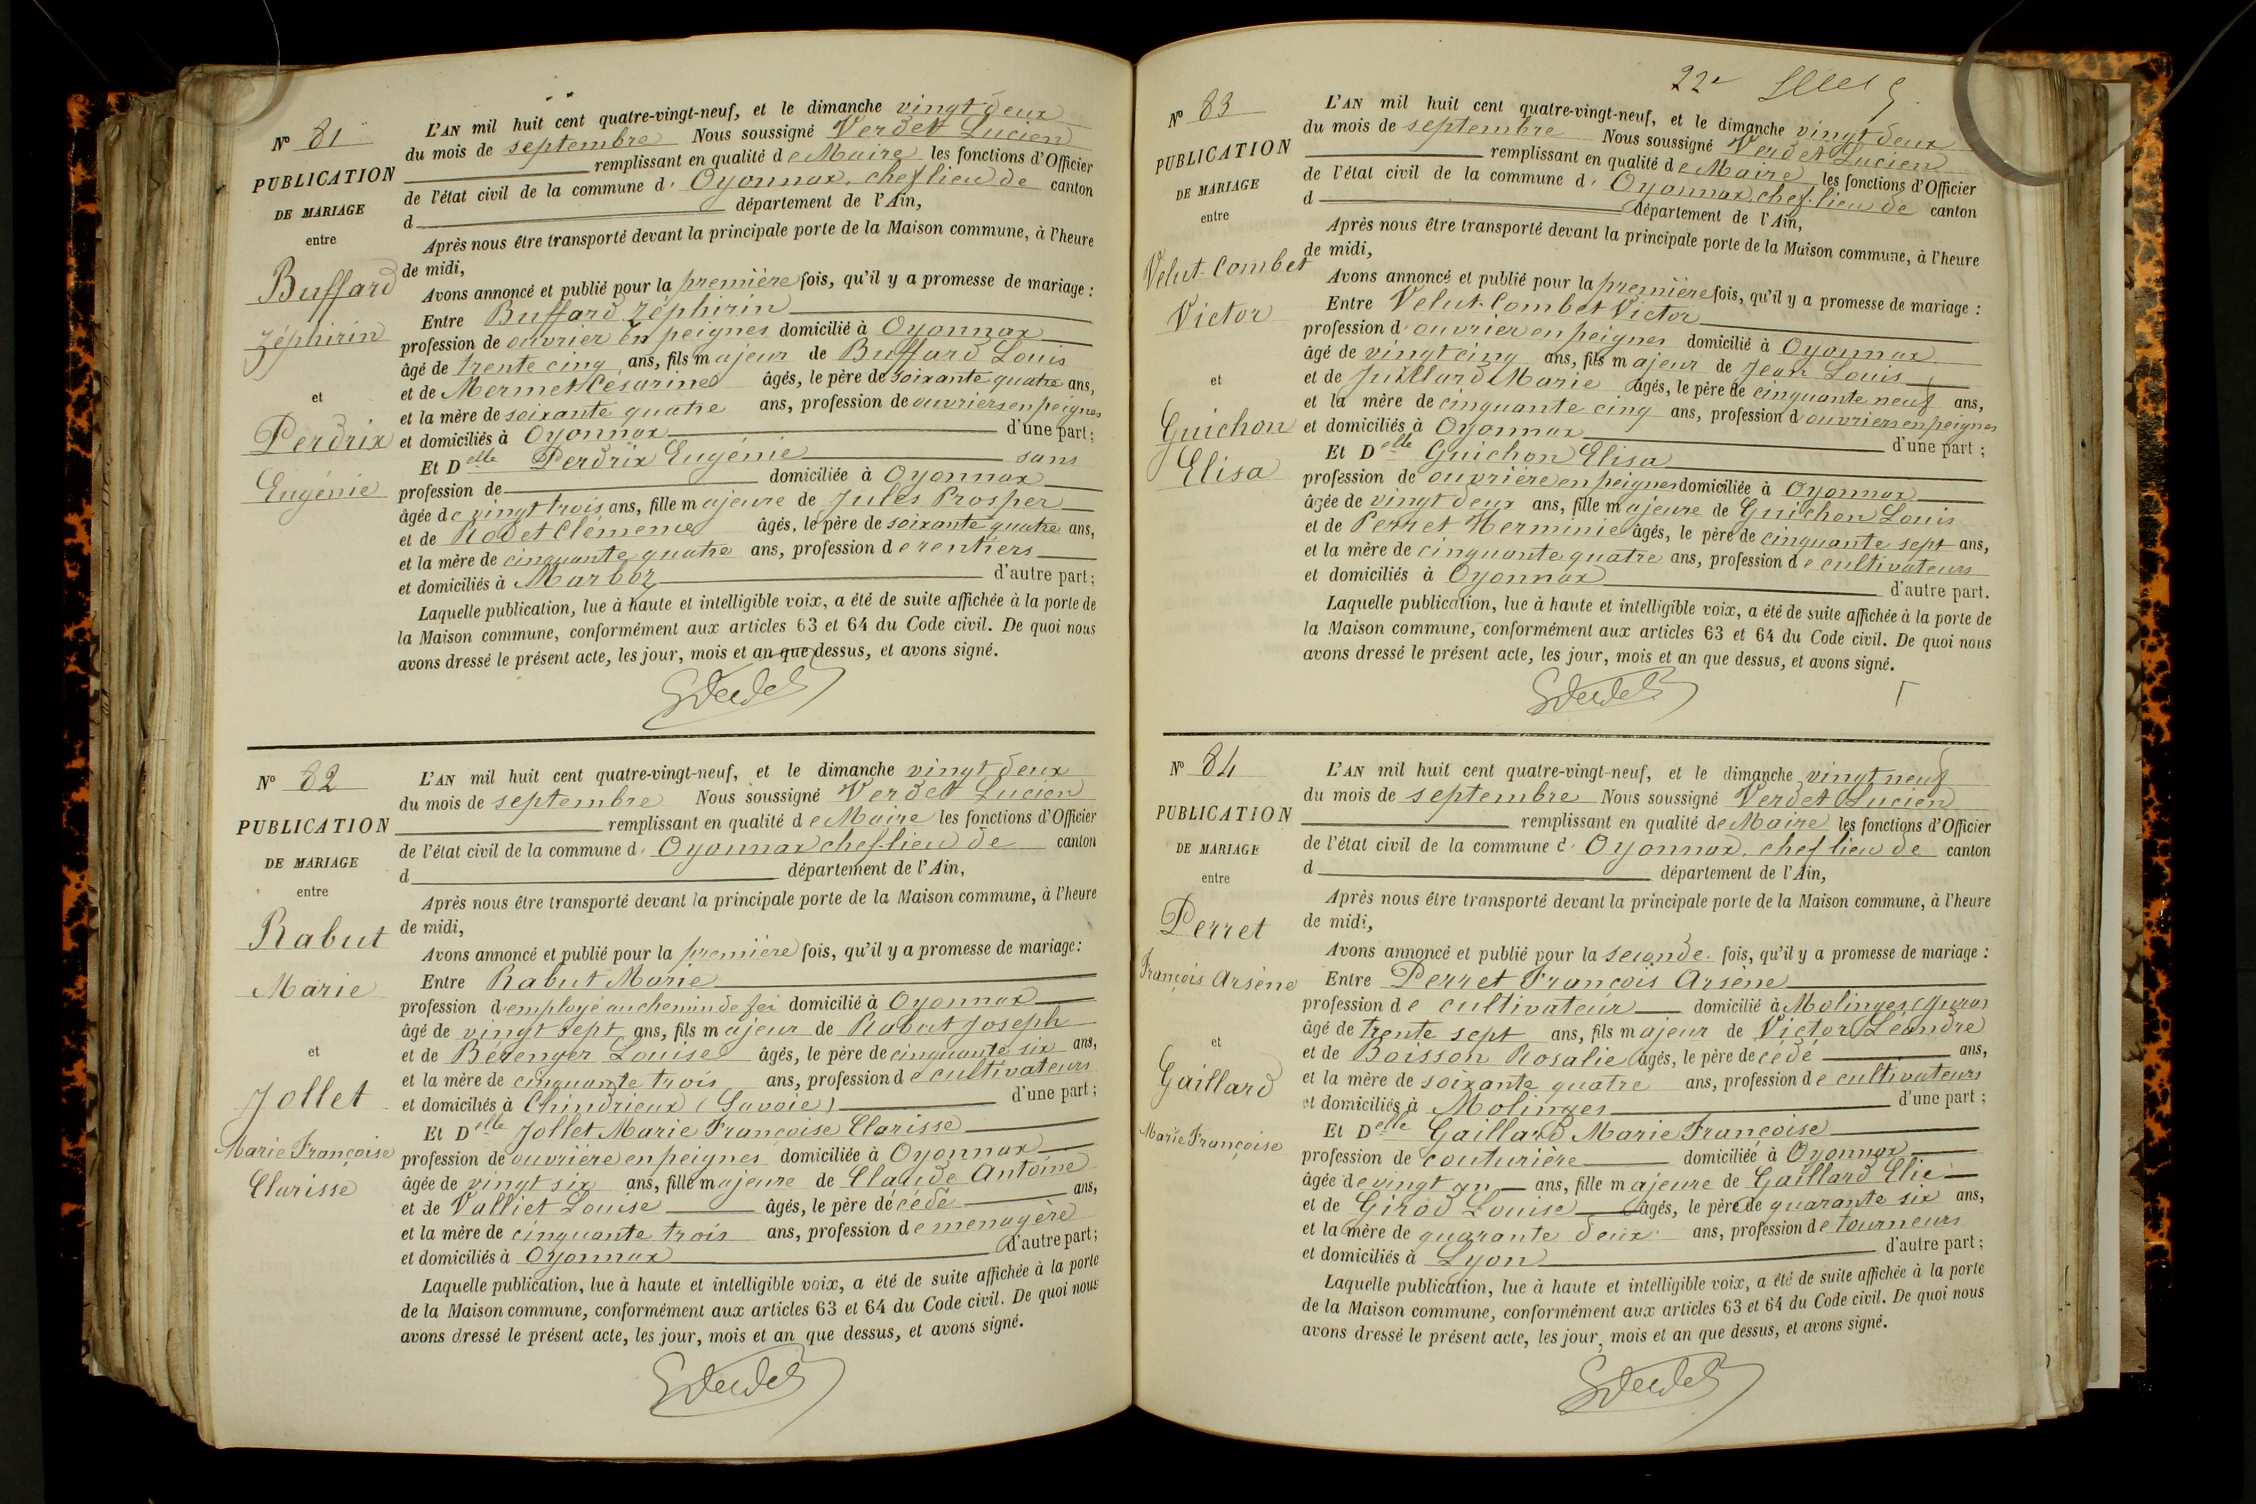 Nº 81
PUBLICATION
DE MARIAGE
entre
Buffard
Zéphirin
et
Perdrix
Eugénie
L'AN mil huit cent quatre-vingt-neuf, et le dimanche vingt deux
du mois de septembre Nous soussigné Verdet Lucien
remplissant en qualité de Maire les fonctions d'Officier
de l'état civil de la commune d' Oyonnax, chef lieu de canton
d département de l'Ain,
Après nous être transporté devant la principale porte de la Maison commune, à l'heure
de midi,
Avons annoncé et publié pour la première fois, qu'il y a promesse de mariage :
Entre Buffard Zéphirin
profession de ouvrier en peignes domicilié à Oyonnax
âgé de trente cinq ans, fils majeur de Buffard Louis
et de Mermet Césarine âgés, le père de soixante quatre ans,
et la mère de soixante quatre ans, profession de ouvriers en peignes
et domiciliés à Oyonnax d'une part ;
Et Delle Perdrix Eugénie sans
profession de domiciliée à Oyonnax
âgée de vingt trois ans, fille majeure de Jules Prosper
et de Rodet Clémence âgés, le père de soixante quatre ans,
et la mère de cinquante quatre ans, profession de rentiers
et domiciliés à Marboz d'autre part ;
Laquelle publication, lue à haute et intelligible voix, a été de suite affichée à la porte de
la Maison commune, conformément aux articles 63 et 64 du Code civil. De quoi nous
avons dressé le présent acte, les jour, mois et an que dessus, et avons signé.
Nº 82
PUBLICATION
DE MARIAGE
entre
Rabut
Marie
et
Jollet
Marie Françoise
Clarisse
L'AN mil huit cent quatre-vingt-neuf, et le dimanche vingt deux
du mois de septembre Nous soussigné Verdet Lucien
remplissant en qualité de Maire les fonctions d'Officier
de l'état civil de la commune d' Oyonnax chef-lieu de canton
d département de l'Ain,
Après nous être transporté devant la principale porte de la Maison commune, à l'heure
de midi,
Avons annoncé et publié pour la première fois, qu'il y a promesse de mariage :
Entre Rabut Marie
profession d'employé au chemin de fer domicilié à Oyonnax
âgé de vingt sept ans, fils majeur de Rabut Joseph
et de Bérenger Louise âgés, le père de cinquante six ans,
et la mère de cinquante trois ans, profession de cultivateurs
et domiciliés à Chindrieux (Savoie) d'une part ;
Et Delle Jollet Marie Françoise Clarisse
profession de ouvrière en peignes domiciliée à Oyonnax
âgée de vingt six ans, fille majeure de Claude Antoine
et de Valliet Louise âgés, le père décédé ans,
et la mère de cinquante trois ans, profession de menagère
et domiciliés à Oyonnax d'autre part ;
Laquelle publication, lue à haute et intelligible voix, a été de suite affichée à la porte
de la Maison commune, conformément aux articles 63 et 64 du Code civil. De quoi nous
avons dressé le présent acte, les jour, mois et an que dessus, et avons signé.
Nº 83
PUBLICATION
DE MARIAGE
entre
Velut-Combet
Victor
et
Guichon
Elisa
L'AN mil huit cent quatre-vingt-neuf, et le dimanche vingt deux
du mois de septembre Nous soussigné Verdet Lucien
remplissant en qualité de Maire les fonctions d'Officier
de l'état civil de la commune d' Oyonnax, chef-lieu de canton
d département de l'Ain,
Après nous être transporté devant la principale porte de la Maison commune, à l'heure
de midi,
Avons annoncé et publié pour la première fois, qu'il y a promesse de mariage :
Entre Velut-Combet Victor
profession d'ouvrier en peignes domicilié à Oyonnax
âgé de vingt cinq ans, fils majeur de Jean Louis
et de Juillard Marie âgés, le père de cinquante neuf ans,
et la mère de cinquante cinq ans, profession d'ouvriers en peignes
et domiciliés à Oyonnax d'une part ;
Et Delle Guichon Elisa
profession de ouvrière en peignes domiciliée à Oyonnax
âgée de vingt deux ans, fille majeure de Guichon Louis
et de Perret Herminie âgés, le père de cinquante sept ans,
et la mère de cinquante quatre ans, profession de cultivateurs
et domiciliés à Oyonnax d'autre part.
Laquelle publication, lue à haute et intelligible voix, a été de suite affichée à la porte de
la Maison commune, conformément aux articles 63 et 64 du Code civil. De quoi nous
avons dressé le présent acte, les jour, mois et an que dessus, et avons signé.
Nº 84
PUBLICATION
DE MARIAGE
entre
Perret
François Arsène
et
Gaillard
Marie Françoise
L'AN mil huit cent quatre-vingt-neuf, et le dimanche vingt neuf
du mois de septembre Nous soussigné Verdet Lucien
remplissant en qualité de Maire les fonctions d'Officier
de l'état civil de la commune d' Oyonnax, chef lieu de canton
d département de l'Ain,
Après nous être transporté devant la principale porte de la Maison commune, à l'heure
de midi,
Avons annoncé et publié pour la seconde fois, qu'il y a promesse de mariage :
Entre Perret François Arsène
profession de cultivateur domicilié à Molinges (Jura)
âgé de trente sept ans, fils majeur de Victor Léandre
et de Boisson Rosalie âgés, le père décédé ans,
et la mère de soixante quatre ans, profession de cultivateurs
et domiciliés à Molinges d'une part ;
Et Delle Gaillard Marie Françoise
profession de couturière domiciliée à Oyonnax
âgée de vingt un ans, fille majeure de Gaillard Elie
et de Girod Louise âgés, le père de quarante six ans,
et la mère de quarante deux ans, profession de tourneurs
et domiciliés à Lyon d'autre part ;
Laquelle publication, lue à haute et intelligible voix, a été de suite affichée à la porte
de la Maison commune, conformément aux articles 63 et 64 du Code civil. De quoi nous
avons dressé le présent acte, les jour, mois et an que dessus, et avons signé.